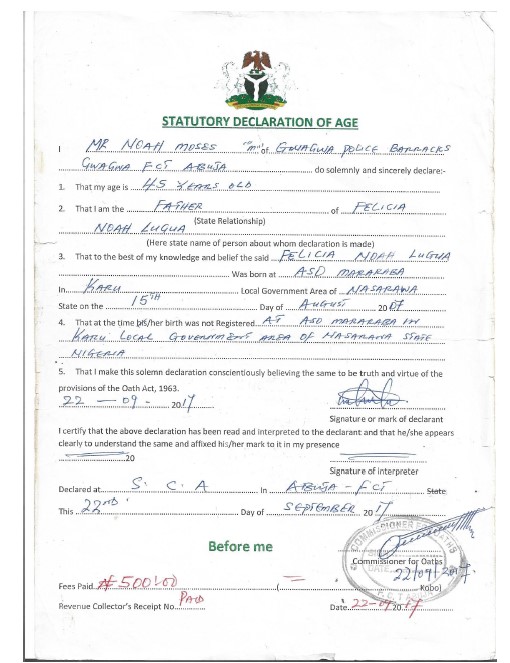 STATUTORY DECLARATION OF AGE
I MR NOAH MOSES "m" of GWAGWA POLICE BARRACKS
GWAGWA FCT ABUJA do solemnly and sincerely declare:-
1. That my age is 45 YEARS OLD
2. That I am the FATHER of FELICIA
(State Relationship)
NOAH LUGUA
(Here state name of person about whom declaration is made)
3. That to the best of my knowledge and belief the said FELICIA NOAH LUGUA
Was born at ASO MARARABA
In KARU Local Government Area of NASARAWA
State on the 15TH Day of AUGUST 2007
4. That at the time his/her birth was not Registered AT ASO MARARABA IN
KARU LOCAL GOVERNMENT AREA OF NASARAWA STATE
NIGERIA
5. That I make this solemn declaration conscientiously believing the same to be truth and virtue of the
provisions of the Oath Act, 1963.
22 - 09 - 2017
Signature or mark of declarant
I certify that the above declaration has been read and interpreted to the declarant and that he/she appears
clearly to understand the same and affixed his/her mark to it in my presence
20
Signature of interpreter
Declared at S. C. A In ABUJA - FCT State
This 22nd Day of SEPTEMBER 2017
Before me
COMMISSIONER FOR OATHS
Commissioner for Oaths
22/09/2017
Fees Paid ₦500:00 ( = Kobo)
Revenue Collector's Receipt No. PAID Date. 22-09 2017